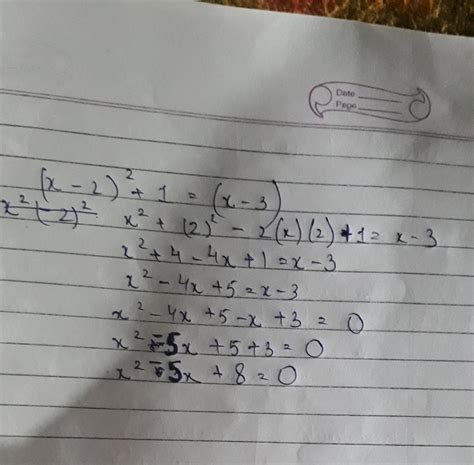 Date
Page
(x - 2)² + 1 = (x - 3)
x² (-2)² x² + (2)² - 2(x)(2) + 1 = x - 3
x² + 4 - 4x + 1 = x - 3
x² - 4x + 5 = x - 3
x² - 4x + 5 - x + 3 = 0
x² - 5x + 5 + 3 = 0
x² - 5x + 8 = 0